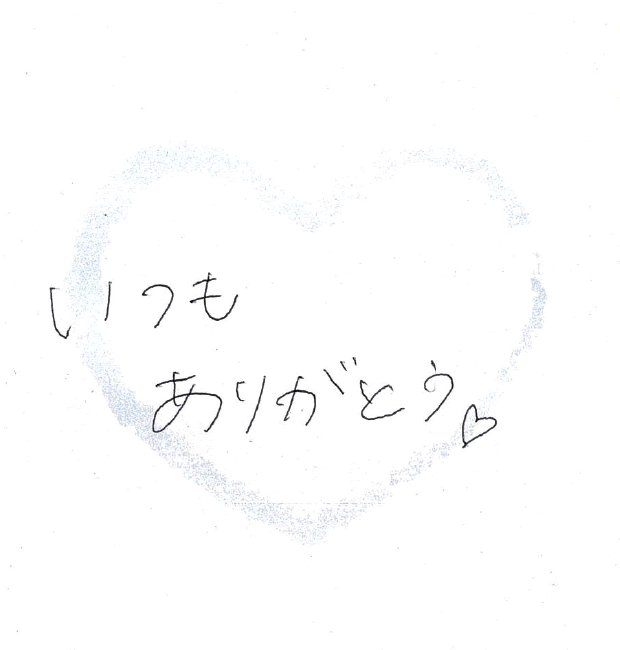 いつも
ありがとう♡